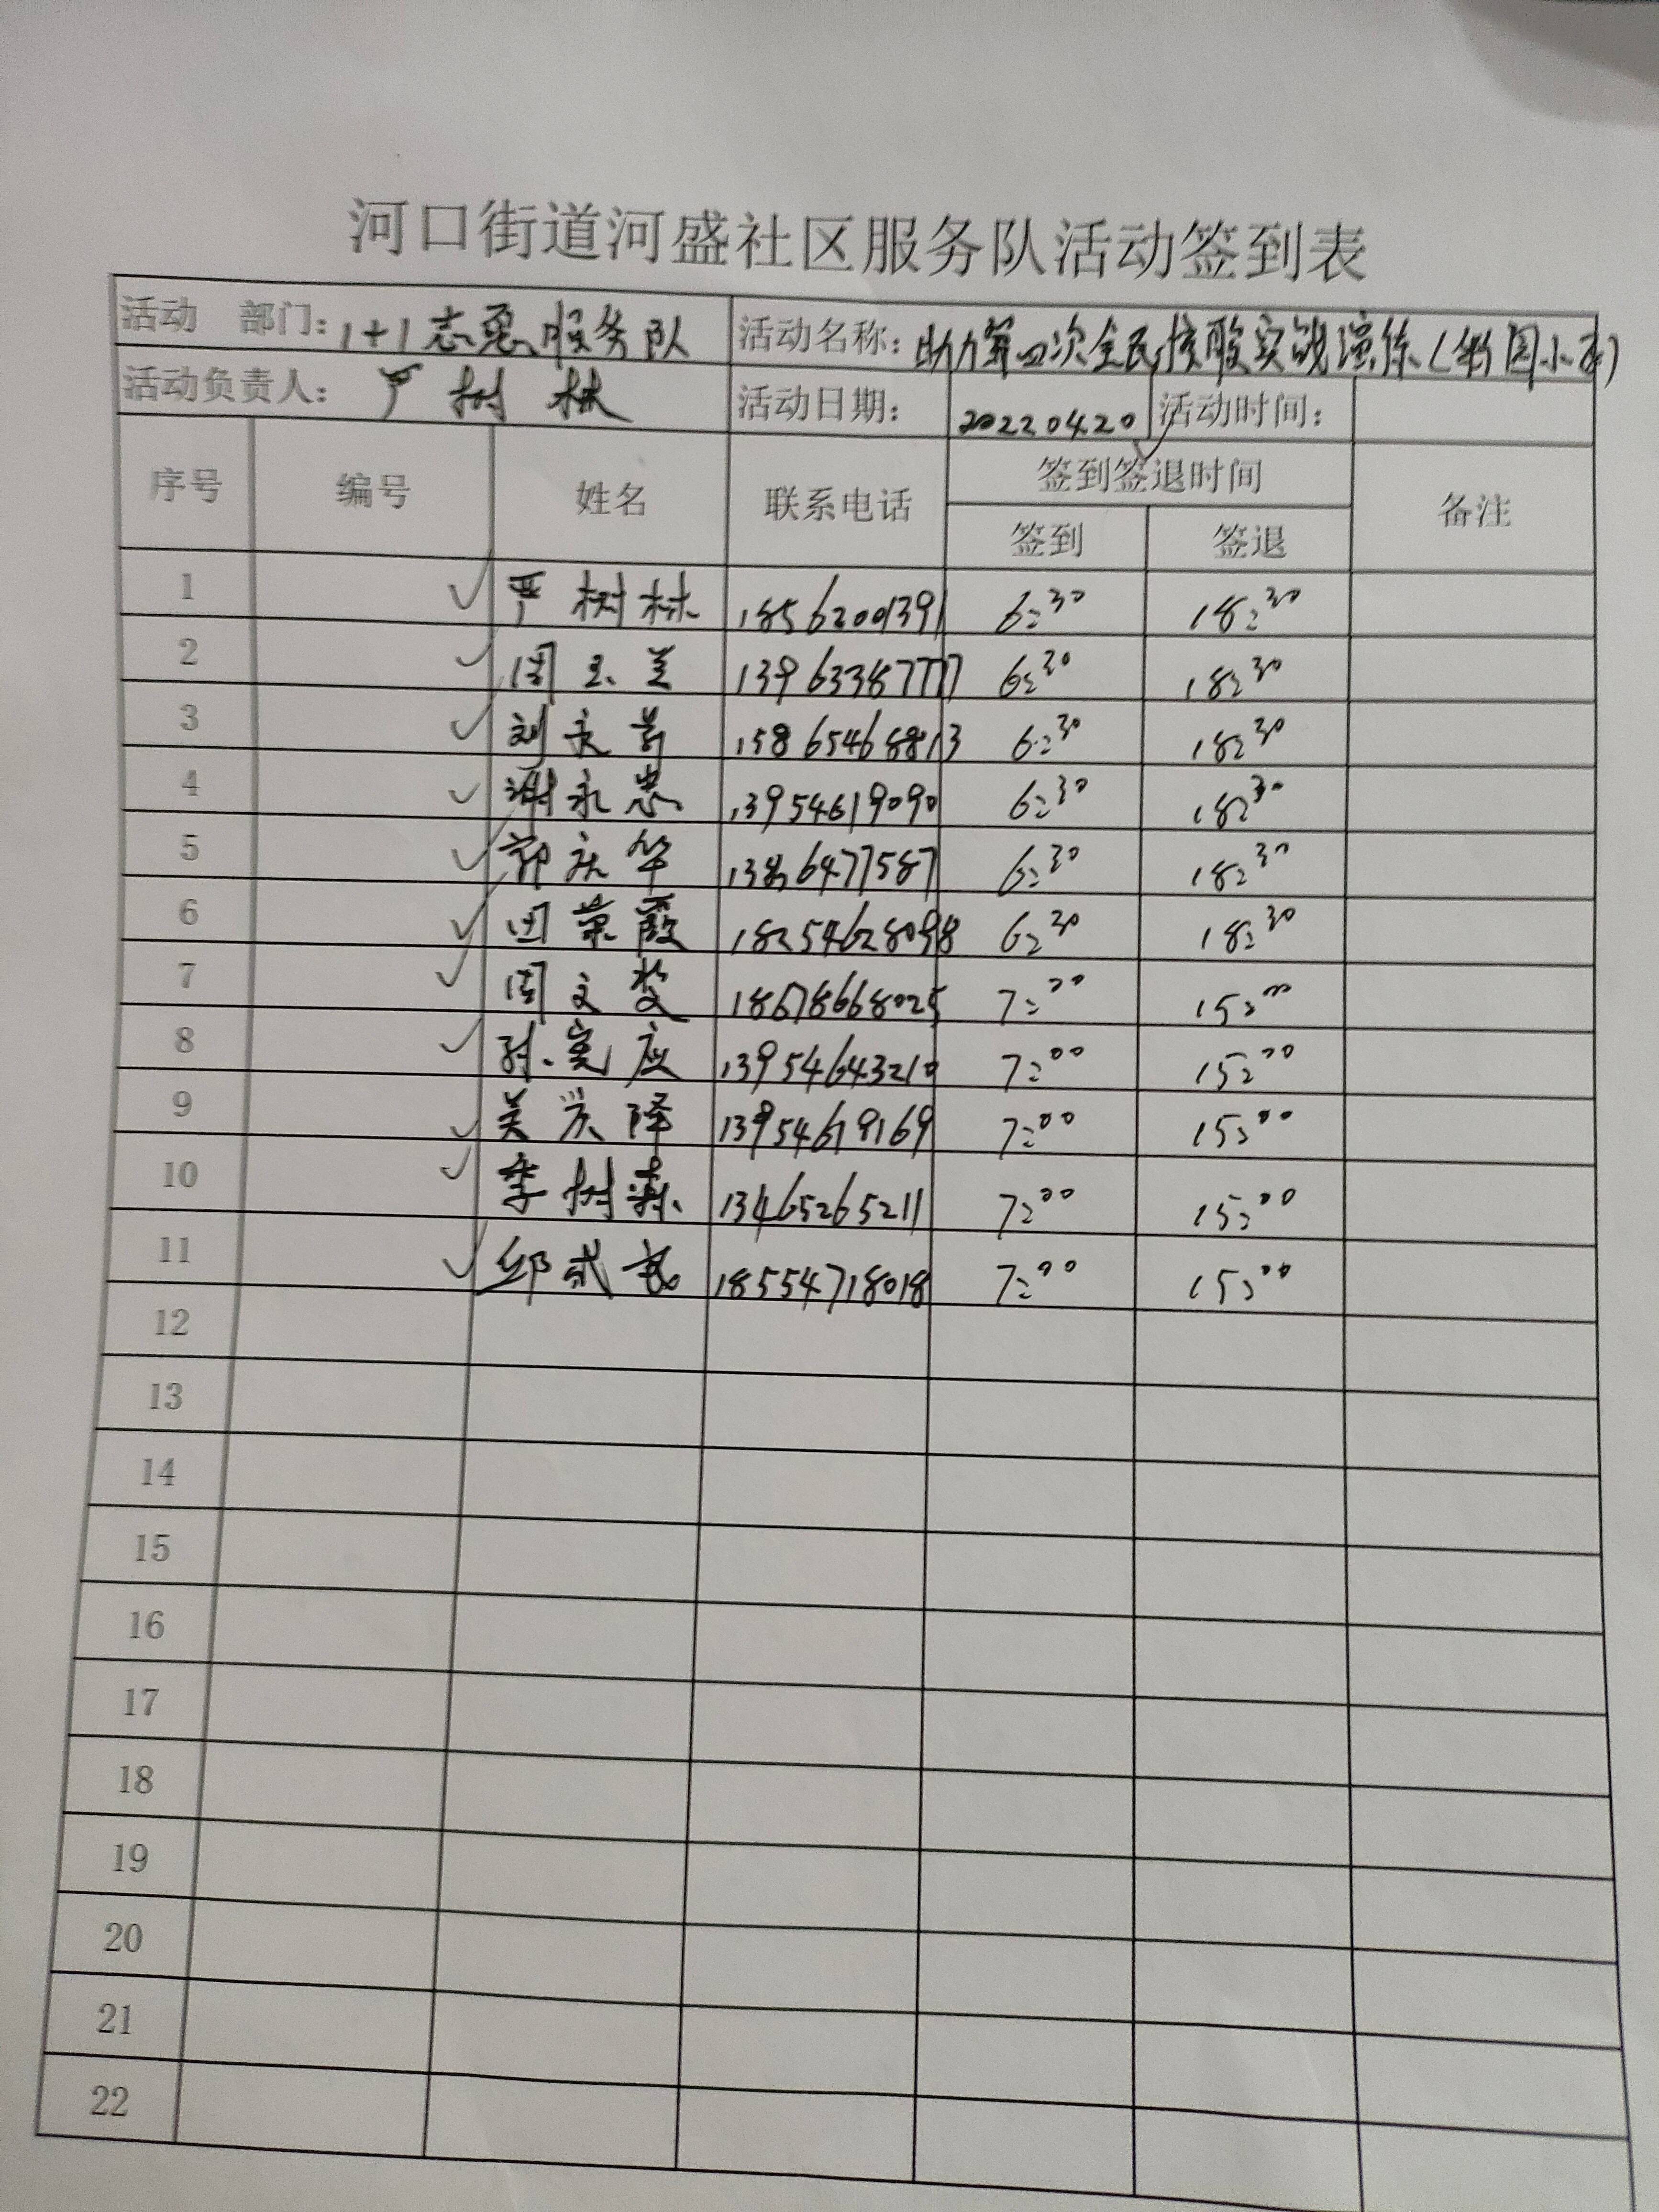 河口街道河盛社区服务队活动签到表
活动 部门: 1+1志愿服务队 活动名称: 助力第四次全民核酸实战演练(新园小区)
活动负责人: 严树林 活动日期: 20220420 活动时间:
序号 编号 姓名 联系电话 签到签退时间 备注
签到 签退
1 ✓ 严树林 18562001391 6:30 18:30
2 ✓ 周玉兰 13963387777 6:30 18:30
3 ✓ 刘 15865468813 6:30 18:30
4 ✓ 谢永忠 13954619090 6:30 18:30
5 ✓ 郭庆华 6:30 18:30
6 ✓ 田荣霞 18254628098 6:30 18:30
7 ✓ 周文 18678668025 7:00 15:00
8 ✓ 孙宪应 13954643210 7:00 15:00
9 ✓ 吴兴泽 13954619169 7:00 15:00
10 ✓ 李树森 13465265211 7:00 15:00
11 ✓ 邱武 18554718018 7:00 15:00
12
13
14
15
16
17
18
19
20
21
22